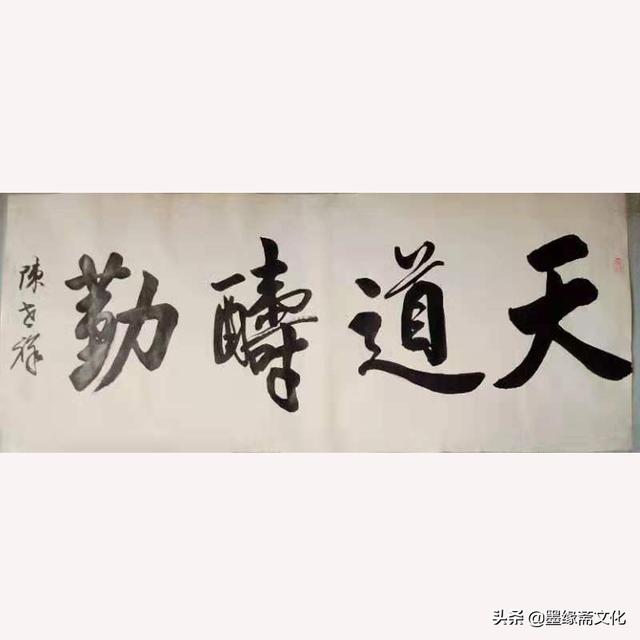 天道醻勤
陳世祥
头条 @墨缘斋文化